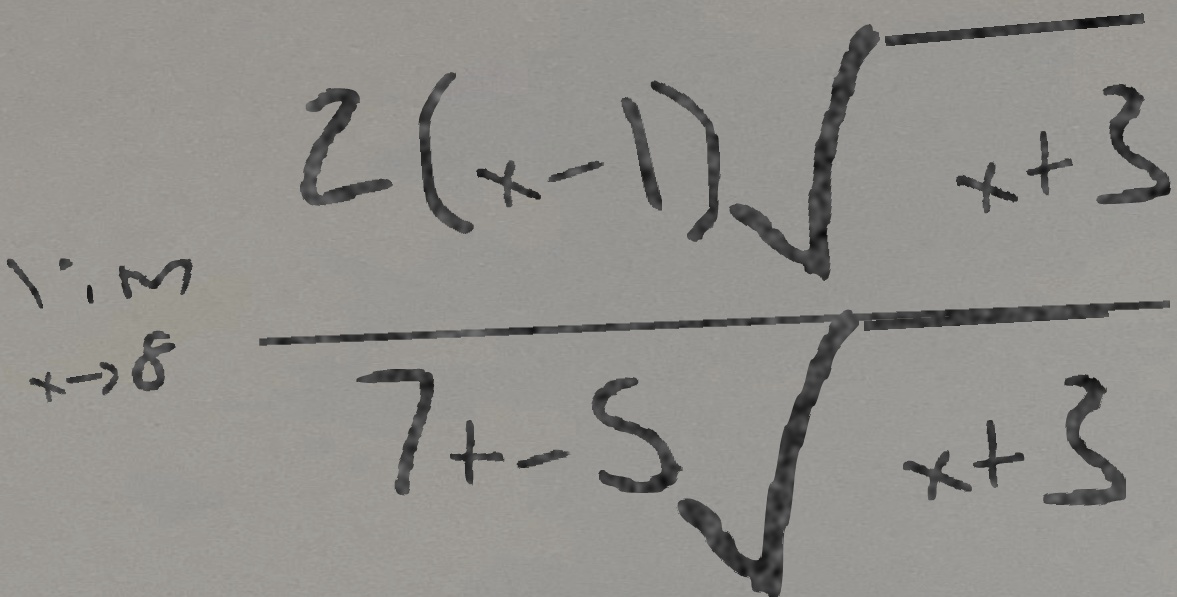 \lim_{x \to 8} \frac{2(x-1)\sqrt{x+3}}{7+-5\sqrt{x+3}}